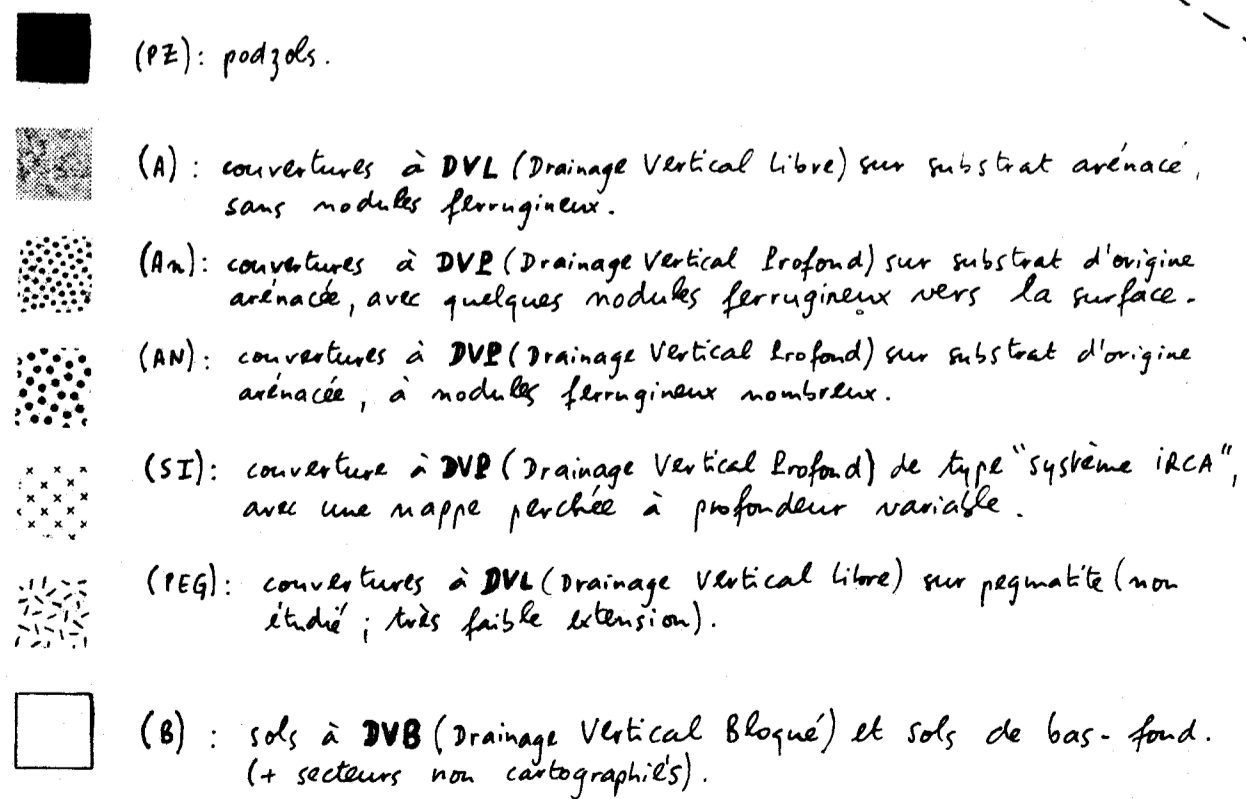 (PZ): podzols.
(A) : couvertures à DVL (Drainage Vertical Libre) sur substrat arénacé,
sans nodules ferrugineux.
(An): couvertures à DVP (Drainage Vertical Profond) sur substrat d'origine
arénacée, avec quelques nodules ferrugineux vers la surface.
(AN): couvertures à DVP (Drainage Vertical Profond) sur substrat d'origine
arénacée, à nodules ferrugineux nombreux.
(SI): couverture à DVP (Drainage Vertical Profond) de type "système iRCA",
avec une nappe perchée à profondeur variable.
(PEG): couvertures à DVL (Drainage Vertical Libre) sur pegmatite (non
étudié ; très faible extension).
(B) : sols à DVB (Drainage Vertical Bloqué) et sols de bas-fond.
(+ secteurs non cartographiés).